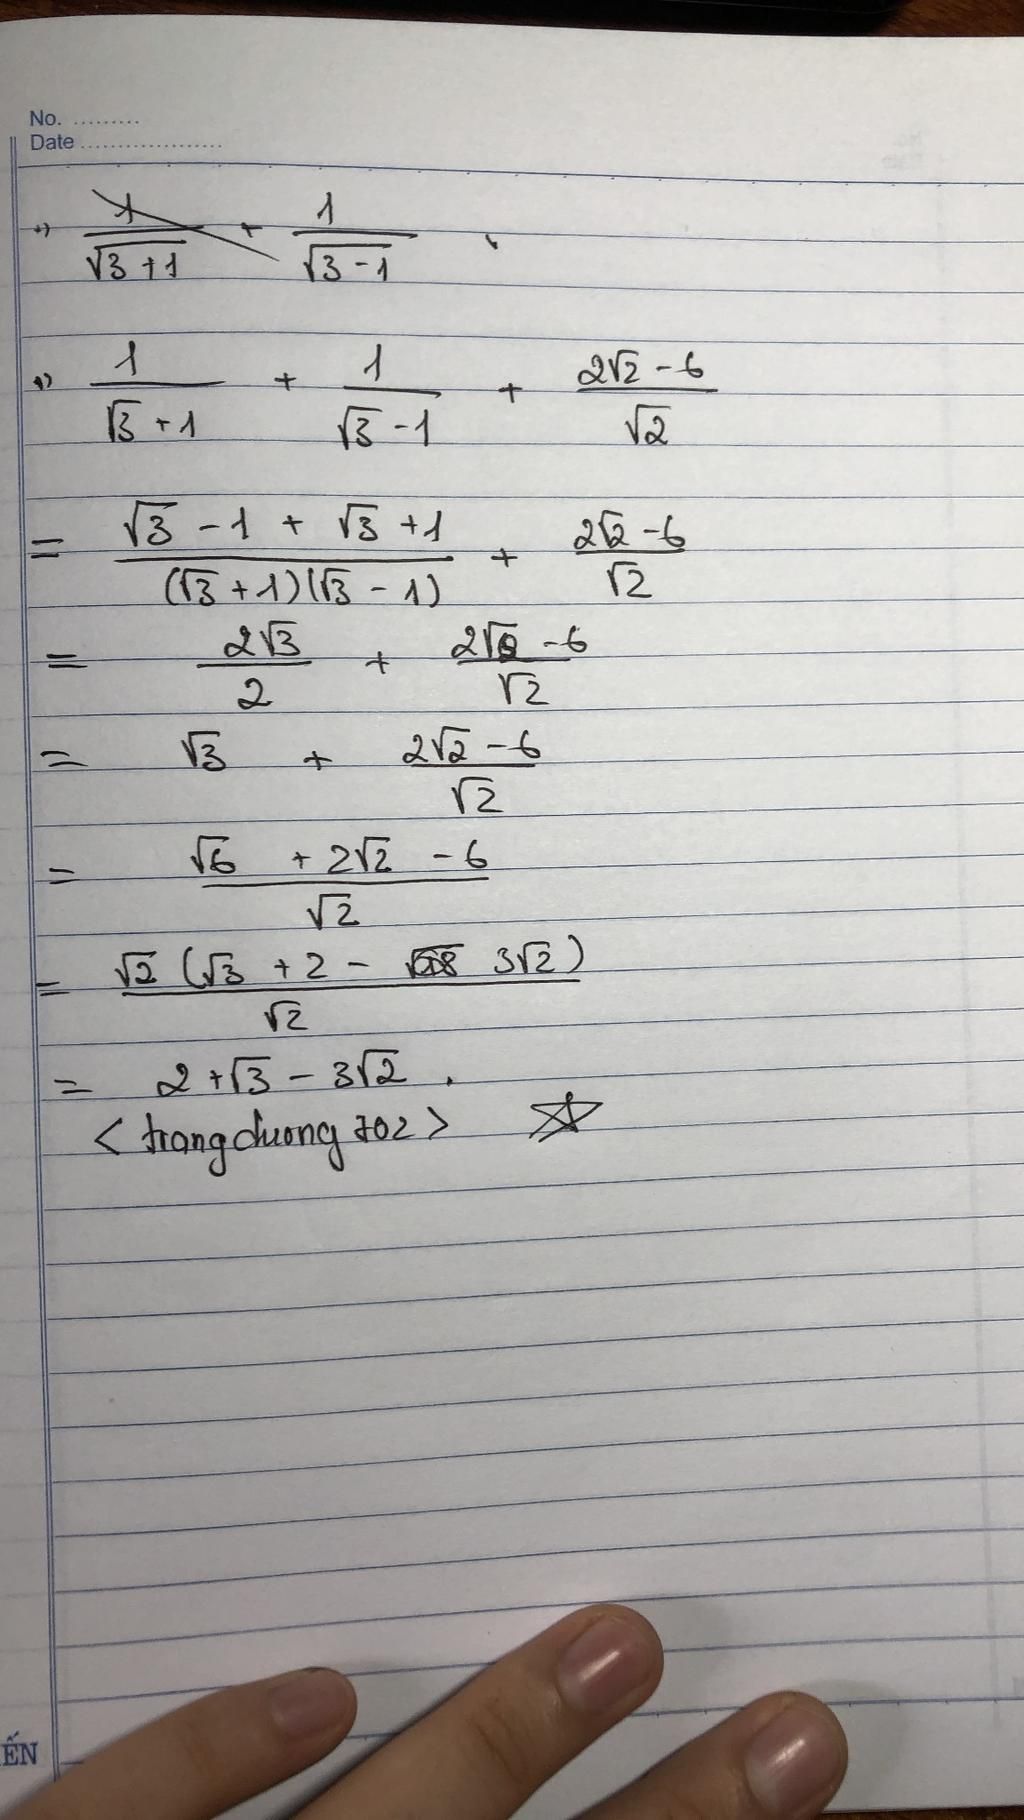 No. .........
Date ...................
*) 1/(√3 + 1) + 1/(√3 - 1)
*) 1/(√3 + 1) + 1/(√3 - 1) + (2√2 - 6)/√2
= (√3 - 1 + √3 + 1)/((√3 + 1)(√3 - 1)) + (2√2 - 6)/√2
= 2√3/2 + (2√2 - 6)/√2
= √3 + (2√2 - 6)/√2
= (√6 + 2√2 - 6)/√2
= √2 (√3 + 2 - 3√2)/√2
= 2 + √3 - 3√2 .
< trangduong702 > ☆
ẾN